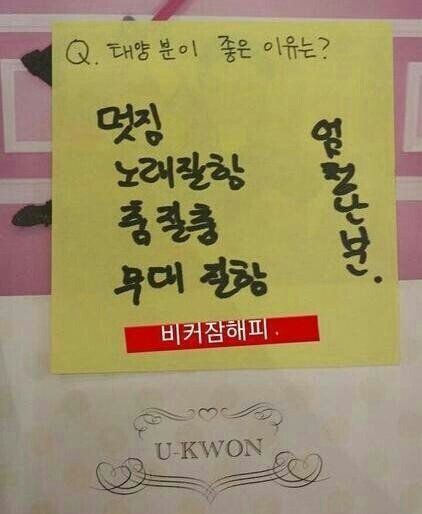 Q. 태양 분이 좋은 이유는?
멋짐
노래잘함
춤잘춤
무대 잘함
엄청난분.
비커잠해피.
U-KWON